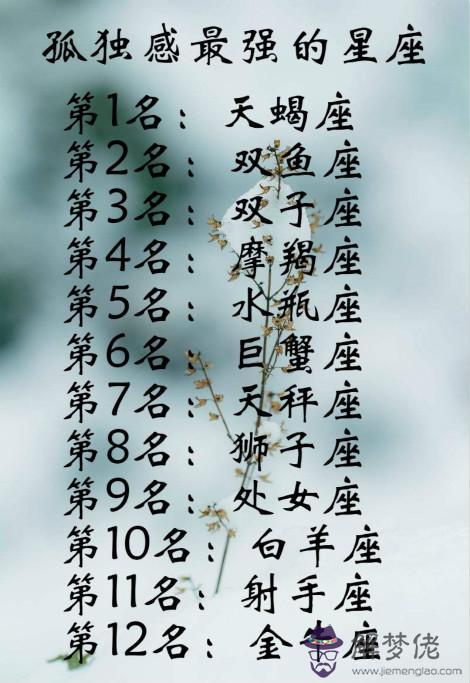 孤独感最强的星座
第1名：天蝎座
第2名：双鱼座
第3名：双子座
第4名：摩羯座
第5名：水瓶座
第6名：巨蟹座
第7名：天秤座
第8名：狮子座
第9名：处女座
第10名：白羊座
第11名：射手座
第12名：金牛座
解梦佬
www.jiemenglao.com